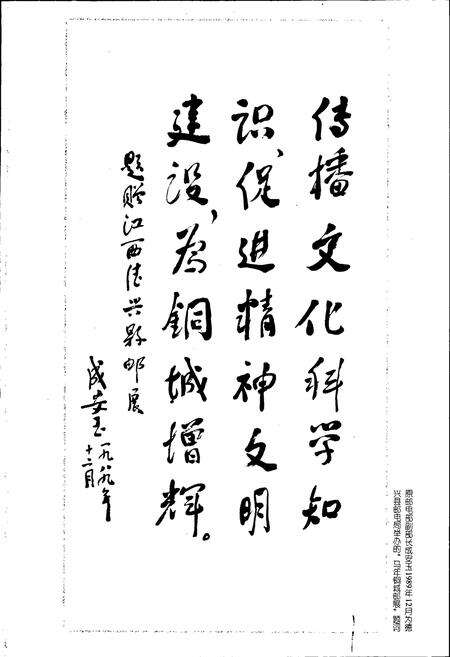 传播文化科学知
识,促进精神文明
建设,为铜城增辉。
题赠江西德兴县邮展
成安玉一九八九年
十二月
原邮电部副部长成安玉1989年12月为德
兴县邮电局举办的“马年铜城邮展”题词